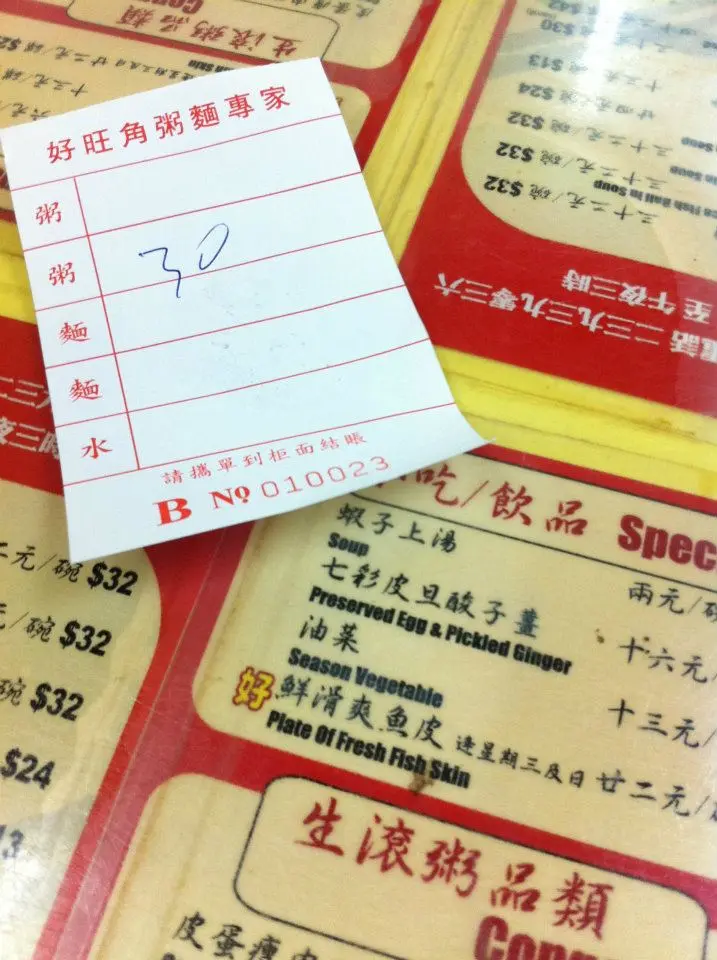 好旺角粥麵專家
粥
粥
30
麵
麵
水
請攜單到柜面結賬
B No 010023
生滾粥品類
$30
十三元/碗 $13
廿四元/碗 $24
三十二元/碗 $32
三十二元/碗 $32
Fish Ball in Soup
三十二元/碗 $32
電話 二三九三九零三六
至午夜三時
吃/飲品 Spec
蝦子上湯
Soup
兩元/
七彩皮旦酸子薑
Preserved Egg & Pickled Ginger
十六元/
油菜
Season Vegetable
十三元/
好 鮮滑爽魚皮 逢星期三及日 廿二元/
Plate Of Fresh Fish Skin
二元/碗 $32
元/碗 $32
碗 $32
$24
生滾粥品類
Cong
皮蛋瘦肉